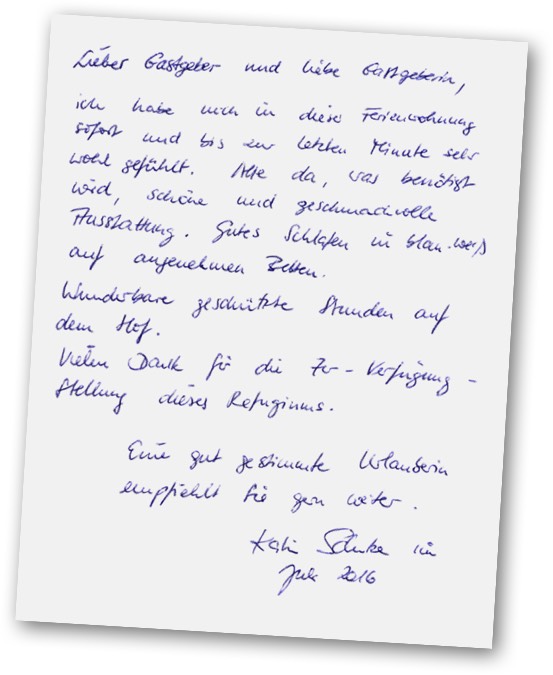 Lieber Gastgeber und liebe Gastgeberin,
ich habe mich in dieser Ferienwohnung
sofort und bis zur letzten Minute sehr
wohl gefühlt. Alle da, was benötigt
wird, schöne und geschmackvolle
Ausstattung. Gutes Schlafen in blau-weiß
auf angenehmen Betten.
Wunderbare geschützte Stunden auf
dem Hof.
Vielen Dank für die Zur-Verfügung-
Stellung dieses Refugiums.
Eine gut gestimmte Urlauberin
empfiehlt Sie gern weiter.
im
Juli 2016